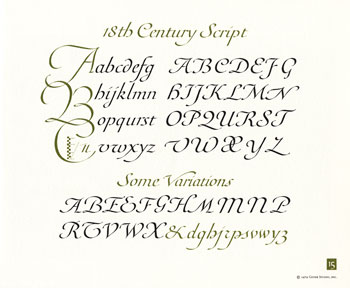 18th Century Script
A abcdefg ABCDEFG
B hijklmn HIJKLMN
opqurst OPQURST
vwxyz VWXYZ
Some Variations
ABEFGHMMNP
RTVWX&dghjrpswwyz
15